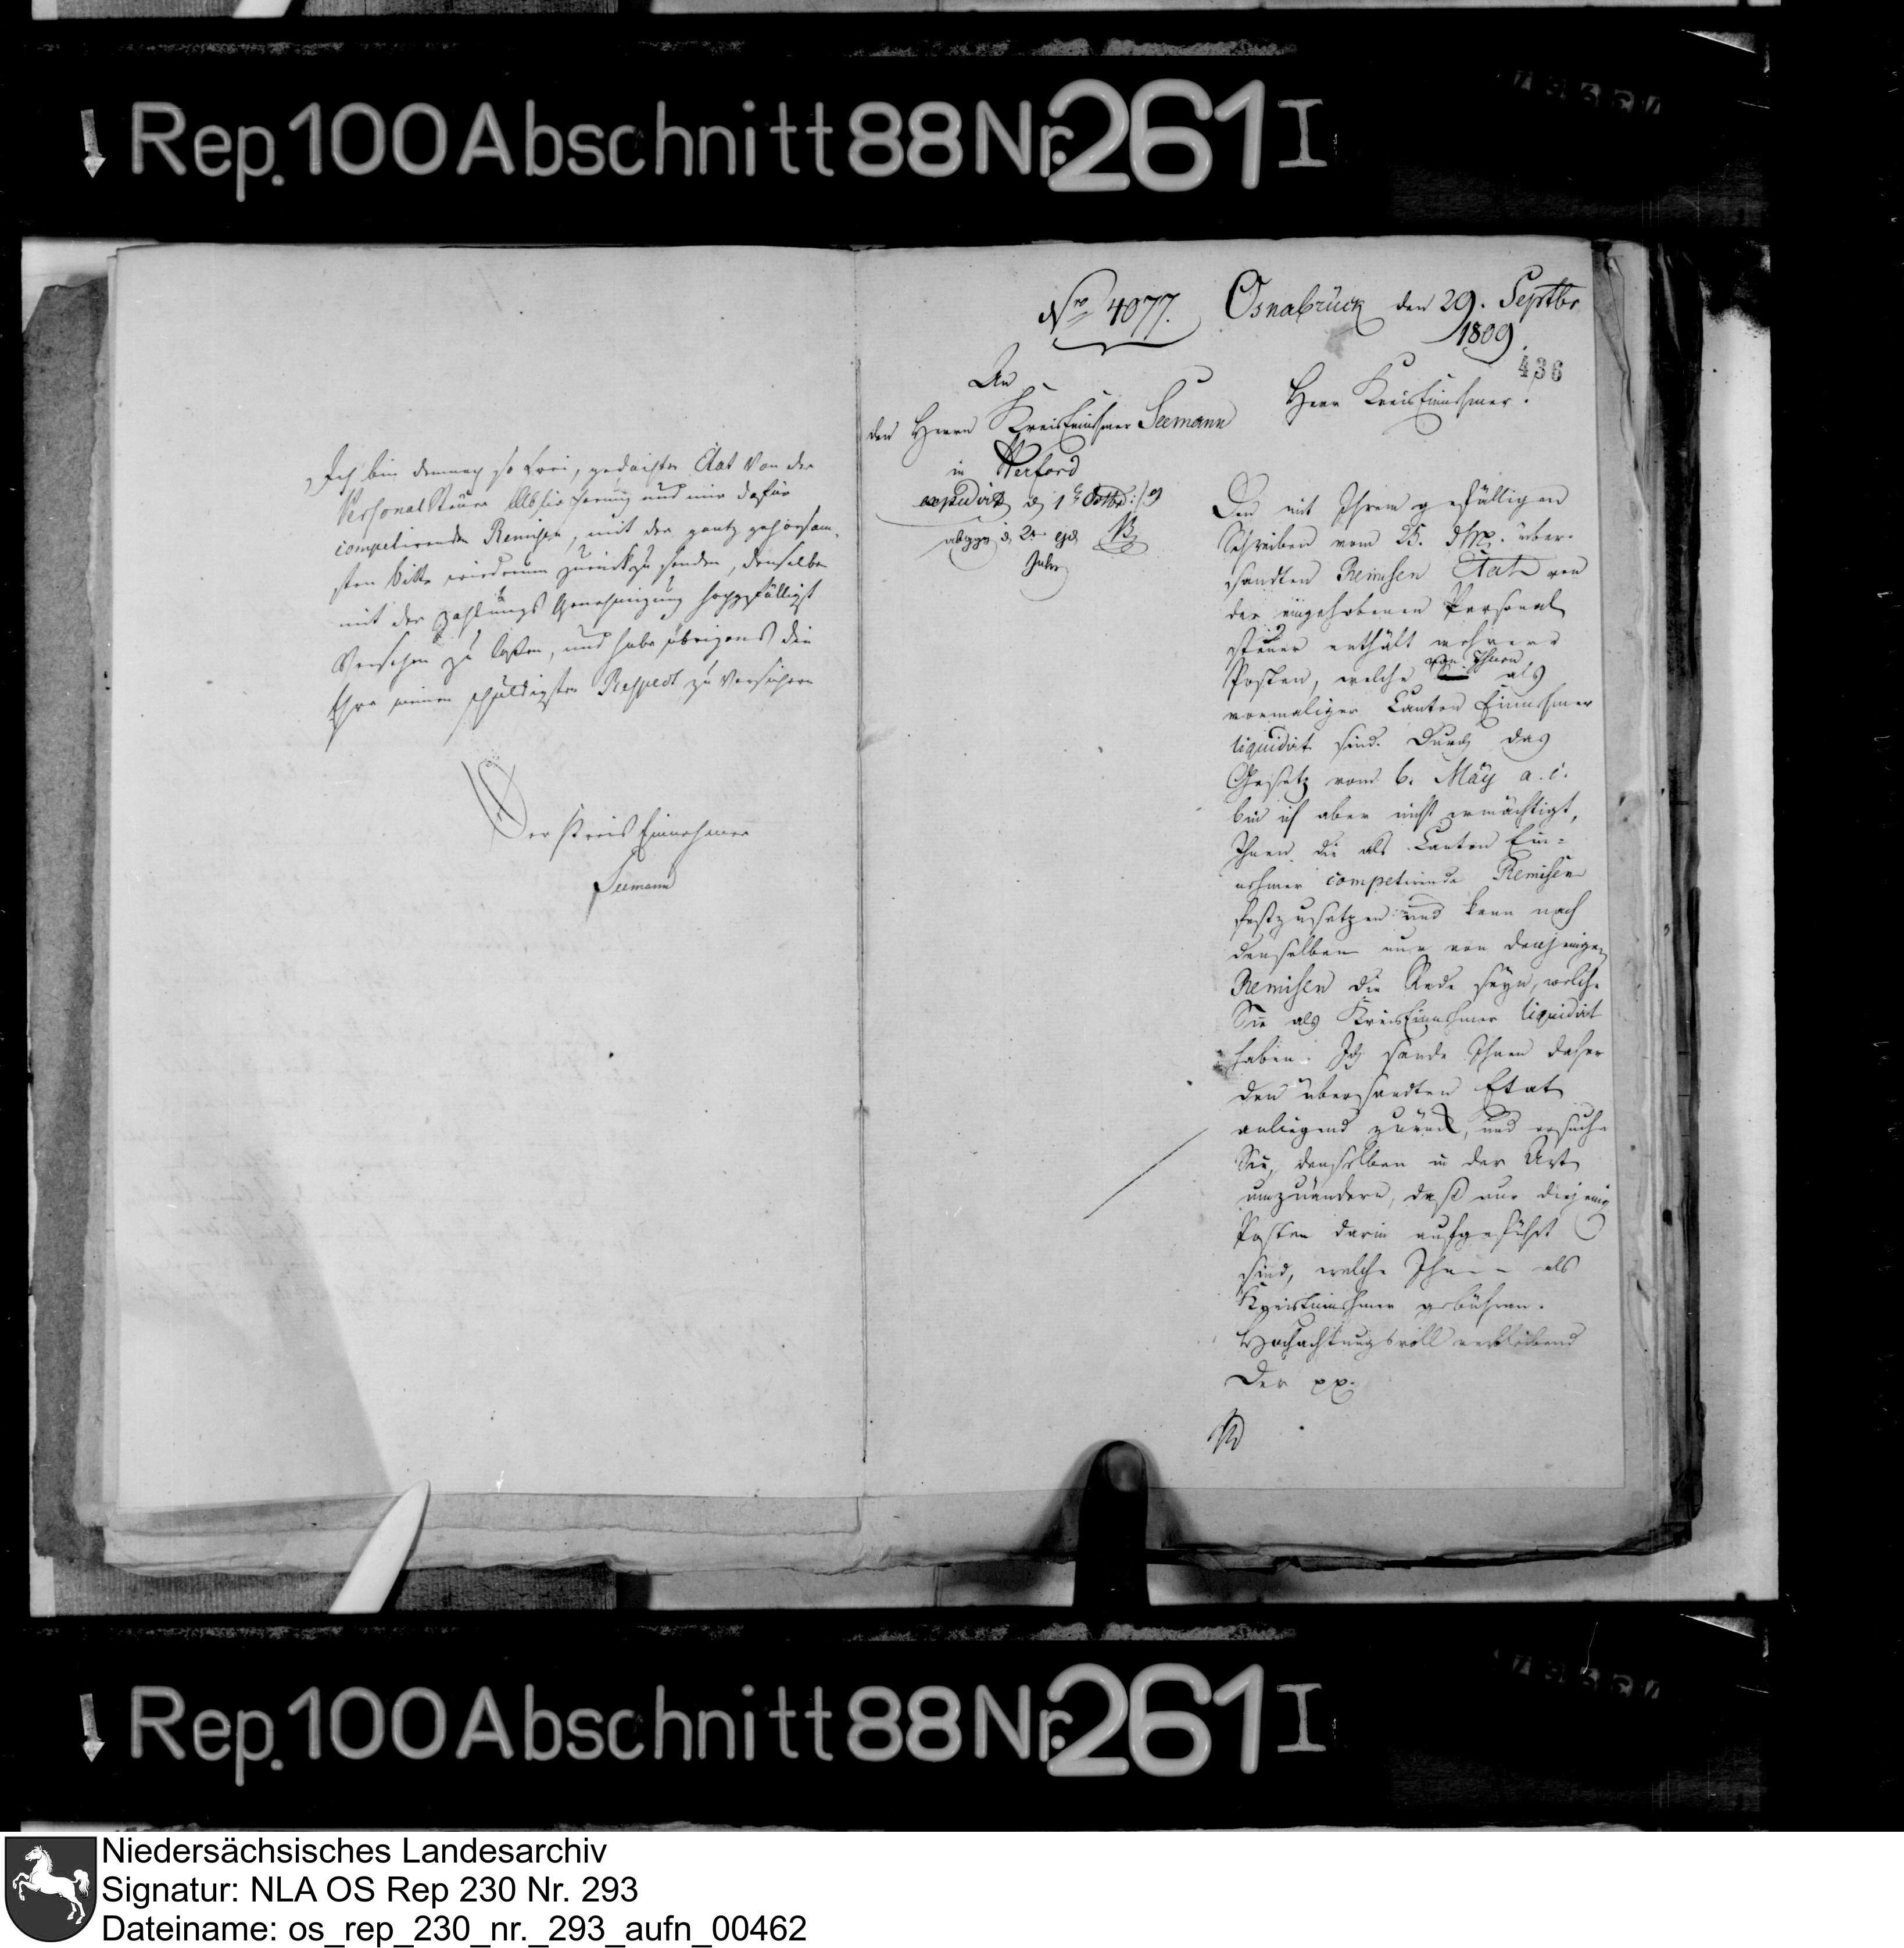 Rep. 100 Abschnitt 88 Nr. 261 I
Ich bin demnach so frei, gedachten Etat von der
Personal Steuer Ablieferung und mir dafür
competirenden Remisen, mit der gantz gehorsam-
sten bitte wiederum zurückzusenden, denselben
mit der Zahlungs Genehmigung hochgefälligst
Versehen zu laßen, und habe übrigens die
Ehre meinen schuldigsten Respect zu versichern
Der Kreis Einnehmer
Seemann
Nro 4077.
Osnabrück den 29. Septbr
1809
436
An
den Herrn KreisEinnehmer Seemann
in Herford
expedirt d 1t Octbr
abgeg d 2n ejd
Herr KreisEinnehmer!
Der mit Ihrem gefälligen
Schreiben vom 25. d. M. über-
sandten Remisen Etat von
der eingehobenen Personal
steuer enthält mehrere
Posten, welche von Ihnen als
vormaliger Canton Einnehmer
liquidirt sind. Durch das
Gesetz vom 6. May a. c.
bin ich aber nicht ermächtigt,
Ihnen die als Canton Ein-
nehmer competirende Remisen
festzusetzen und kann nach
denselben nur von denjenigen
Remisen die Rede seyn, welche
Sie als KreisEinnehmer liquidirt
haben. Ich sende Ihnen daher
den übersandten Etat
anliegend zurück, und ersuche
Sie, denselben in der Art
umzuändern, daß nur diejenigen
Posten darin aufgeführt
sind, welche Ihnen als
KreisEinnehmer gebühren.
Hochachtungsvoll verbleibend
Der pp.
Rep. 100 Abschnitt 88 Nr. 261 I
Niedersächsisches Landesarchiv
Signatur: NLA OS Rep 230 Nr. 293
Dateiname: os_rep_230_nr._293_aufn_00462